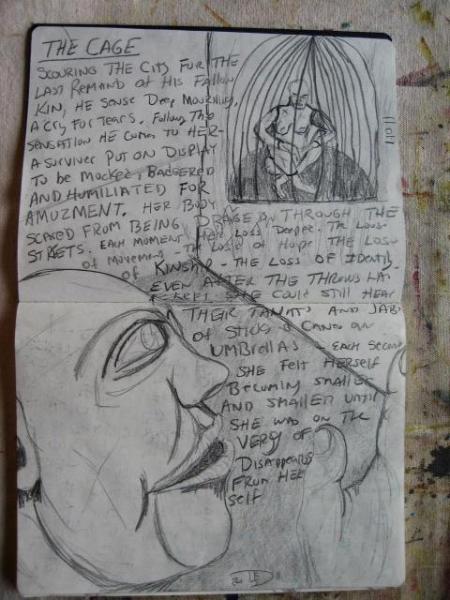 THE CAGE
SCOURING THE CITY FOR THE
LAST REMAND OF HIS FALLEN
KIN, HE SENSE DEEP MOURNING,
A CRY FOR TEARS. FOLLOWING THE
SENSATION HE COMES TO HER-
A SURVIVER PUT ON DISPLAY
TO BE MOCKED, BADGERED
AND HUMILIATED FOR
AMUZMENT. HER BODY
SCARED FROM BEING DRAGE ON THROUGH THE
STREETS. EACH MOMENT HER LOSS DEEPER. THE LOSS
OF MOVEMENT - THE LOSS OF HOPE THE LOSS
OF KINSHIP - THE LOSS OF IDENTITY.
EVEN AFTER THE THROWS HA
SHE COULD STILL HEAR
THEIR TANATS AND JABS
OF STICKS & CANES OR
UMBRELLAS - EACH SECOND
SHE FELT HERSELF
BECOMING SMALLER
AND SMALLER UNTIL
SHE WAS ON THE
VERG OF
DISAPPEARING
FROM HER
SELF